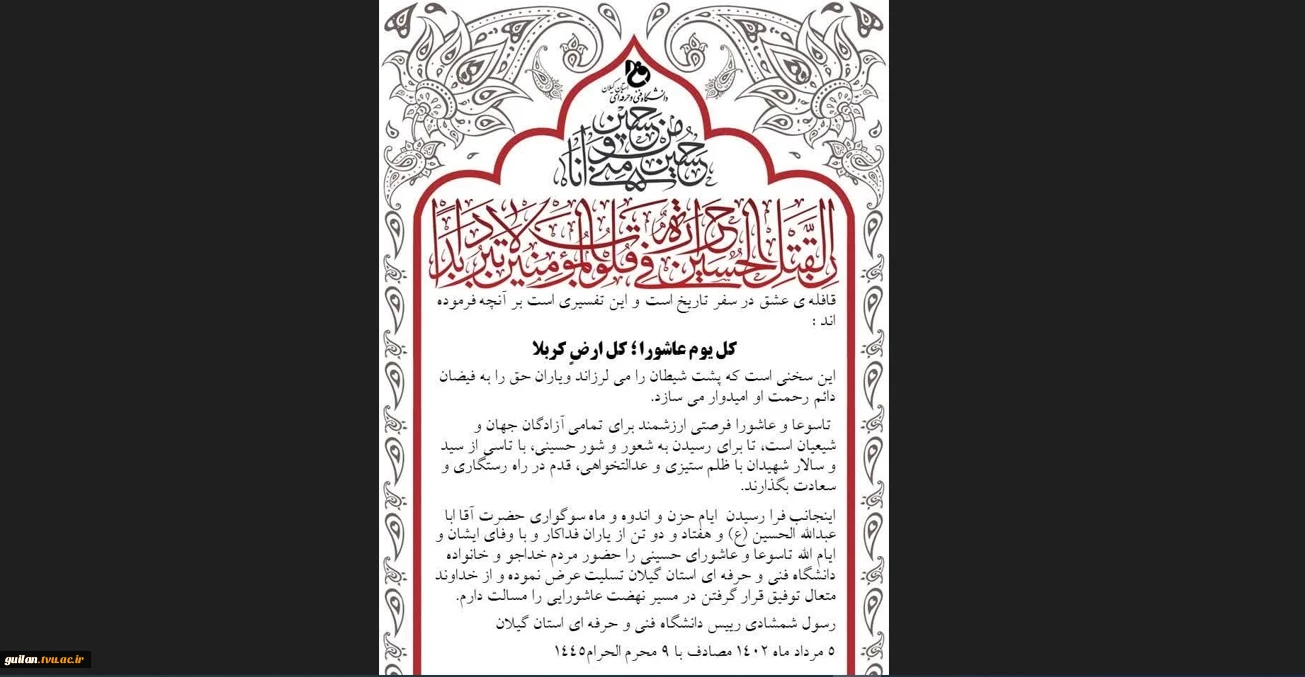 استان گیلان
دانشگاه فنی و حرفه‌ای
حسین
منی و
انا من حسین
ان لقتل الحسین حرارة فی قلوب المؤمنین لا تبرد ابدا
قافله ی عشق در سفر تاریخ است و این تفسیری است بر آنچه فرموده
اند :
کل یوم عاشورا ؛ کل ارضٍ کربلا
این سخنی است که پشت شیطان را می لرزاند ویاران حق را به فیضان
دائم رحمت او امیدوار می سازد.
تاسوعا و عاشورا فرصتی ارزشمند برای تمامی آزادگان جهان و
شیعیان است، تا برای رسیدن به شعور و شور حسینی، با تاسی از سید
و سالار شهیدان با ظلم ستیزی و عدالتخواهی، قدم در راه رستگاری و
سعادت بگذارند.
اینجانب فرا رسیدن ایام حزن و اندوه و ماه سوگواری حضرت آقا ابا
عبدالله الحسین (ع) و هفتاد و دو تن از یاران فداکار و با وفای ایشان و
ایام الله تاسوعا و عاشورای حسینی را حضور مردم خداجو و خانواده
دانشگاه فنی و حرفه ای استان گیلان تسلیت عرض نموده و از خداوند
متعال توفیق قرار گرفتن در مسیر نهضت عاشورایی را مسالت دارم.
رسول شمشادی رییس دانشگاه فنی و حرفه ای استان گیلان
۵ مرداد ماه ۱۴۰۲ مصادف با ۹ محرم الحرام۱۴۴۵
guilan.tvu.ac.ir